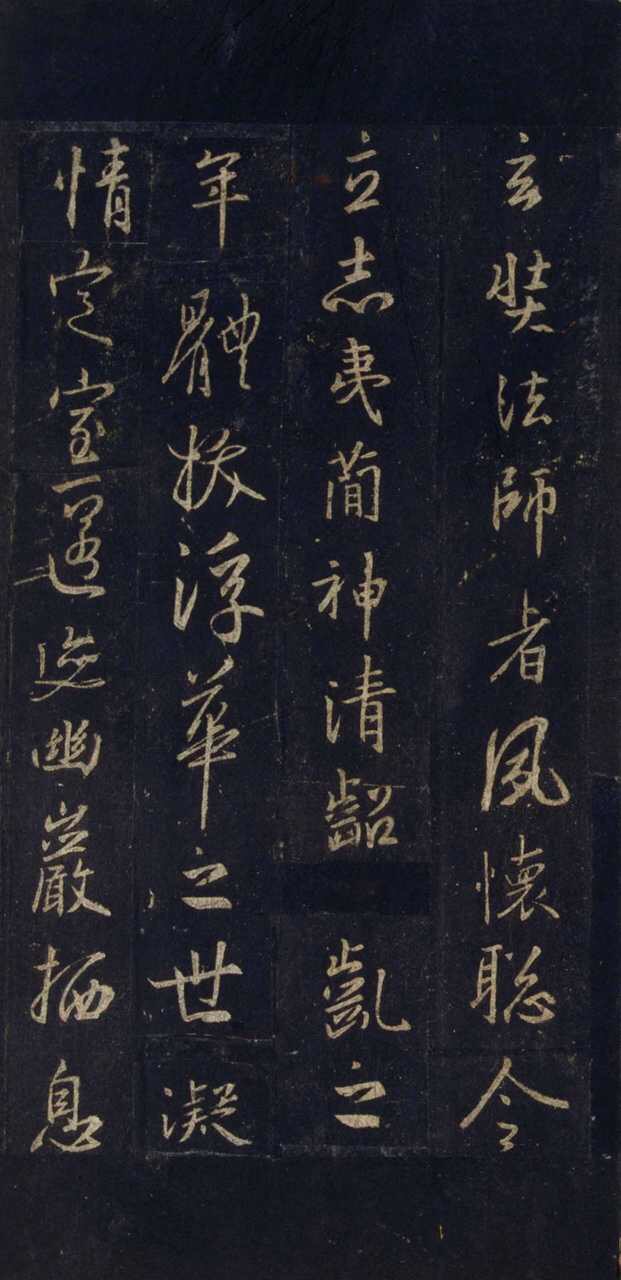 玄奘法師者夙懷聰令
立志夷簡神清齠齔之
年體拔浮華之世凝
情定室匿迹幽巖栖息